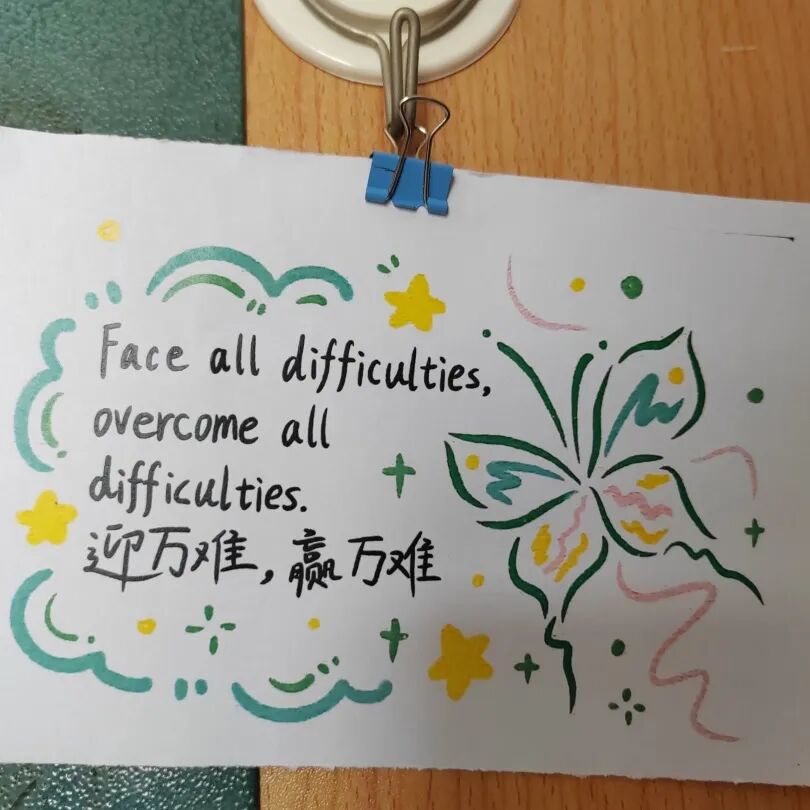 Face all difficulties,
overcome all
difficulties.
迎万难，赢万难